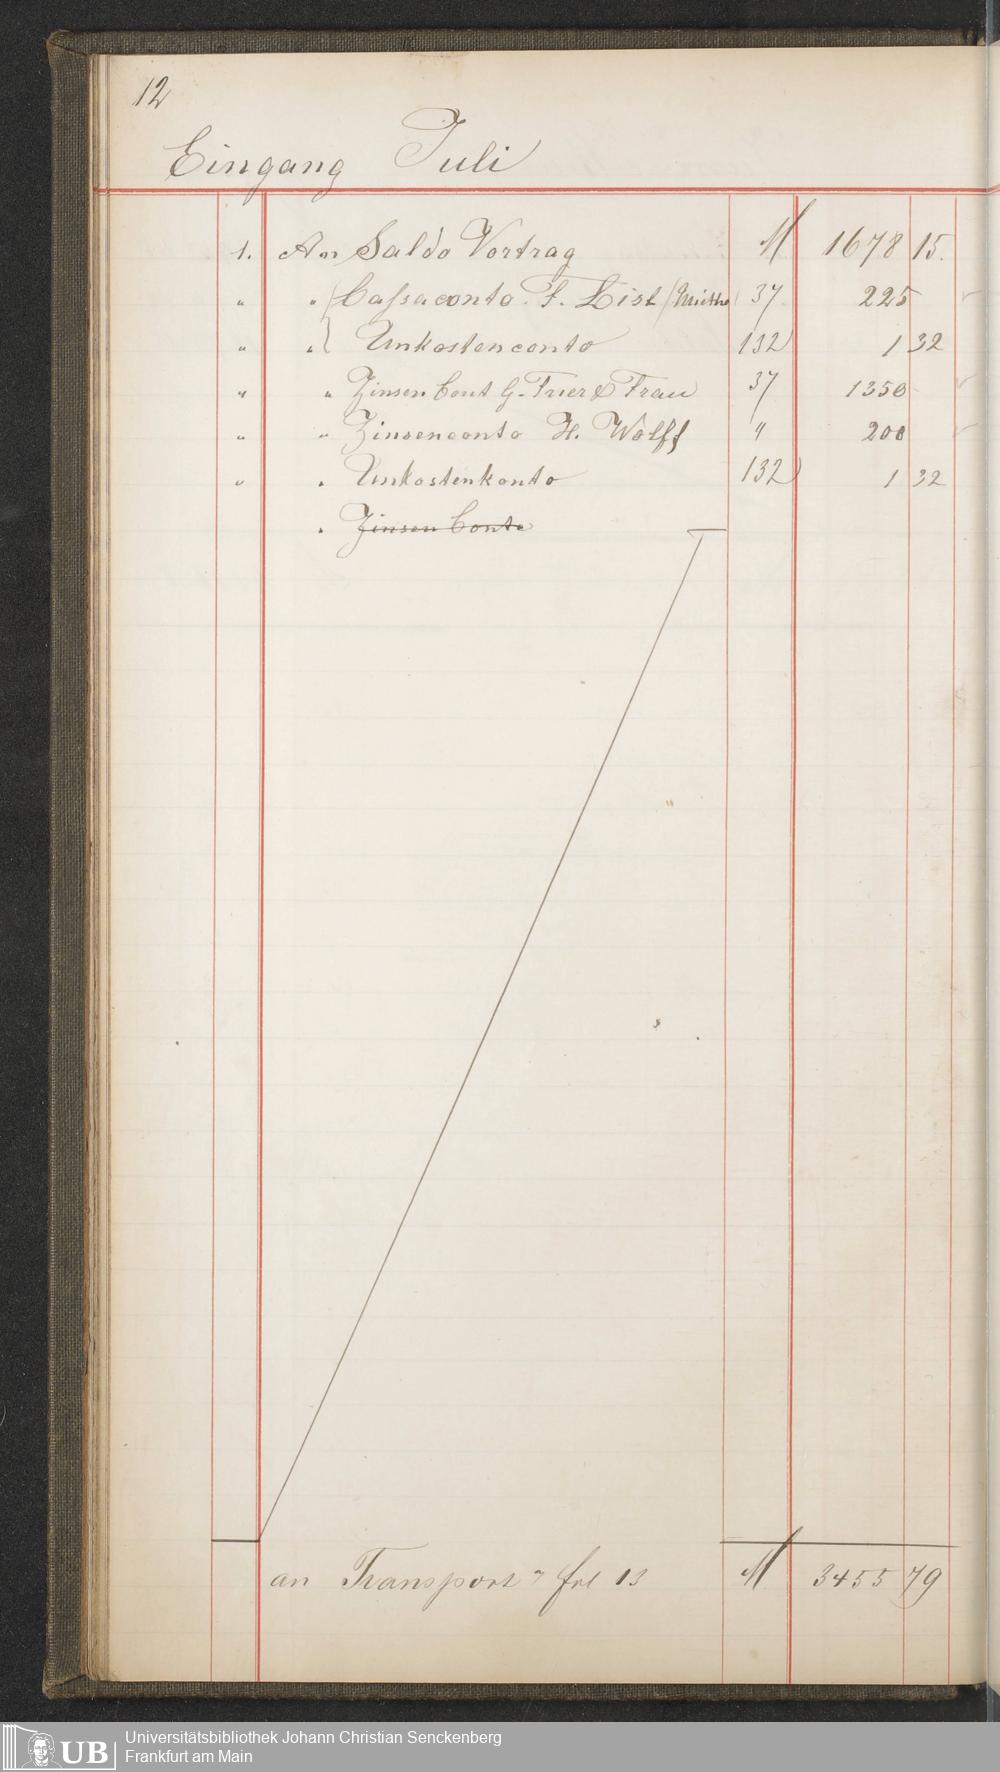 12
Eingang Juli
1. An Saldo Vortrag M 1678 15.
" " Cassaconto F. List (Miethe) 37 225
" " Unkostenconto 132 1 32
" " Zinsen Cont G. Trier & Frau 37 1350
" " Zinsenconto H. Wolff " 200
" " Unkostenkonto 132 1 32
" Zinsen Conto
an Transport " fol 13 M 3455 79
UB
Universitätsbibliothek Johann Christian Senckenberg
Frankfurt am Main